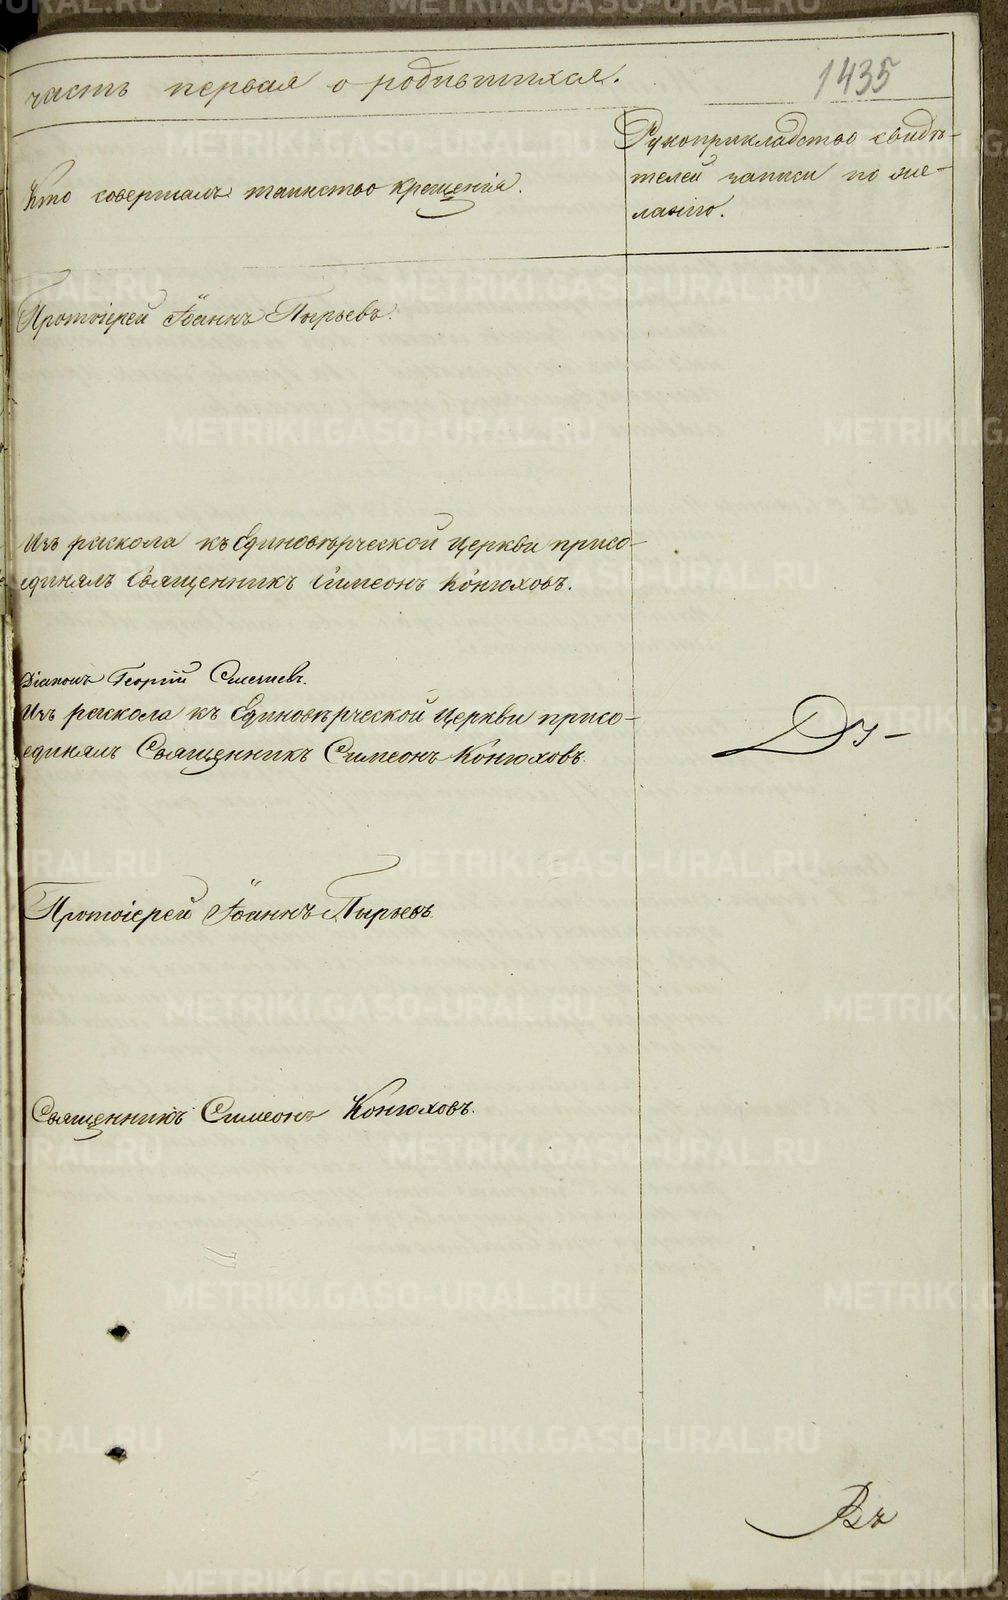 часть первая о родившихся.
1435
Кто совершалъ таинство крещенія.
Рукоприкладство свидѣ-
телей записи по же-
ланію.
Протоіерей Іоаннъ Пырьевъ.
Изъ раскола къ Единовѣрческой Церкви присо-
единялъ Священникъ Симеонъ Конюховъ.
Діаконъ Георгій
Изъ раскола къ Единовѣрческой Церкви присо-
единялъ Священникъ Симеонъ Конюховъ.
Протоіерей Іоаннъ Пырьевъ.
Священникъ Симеонъ Конюховъ.
METRIKI.GASO-URAL.RU